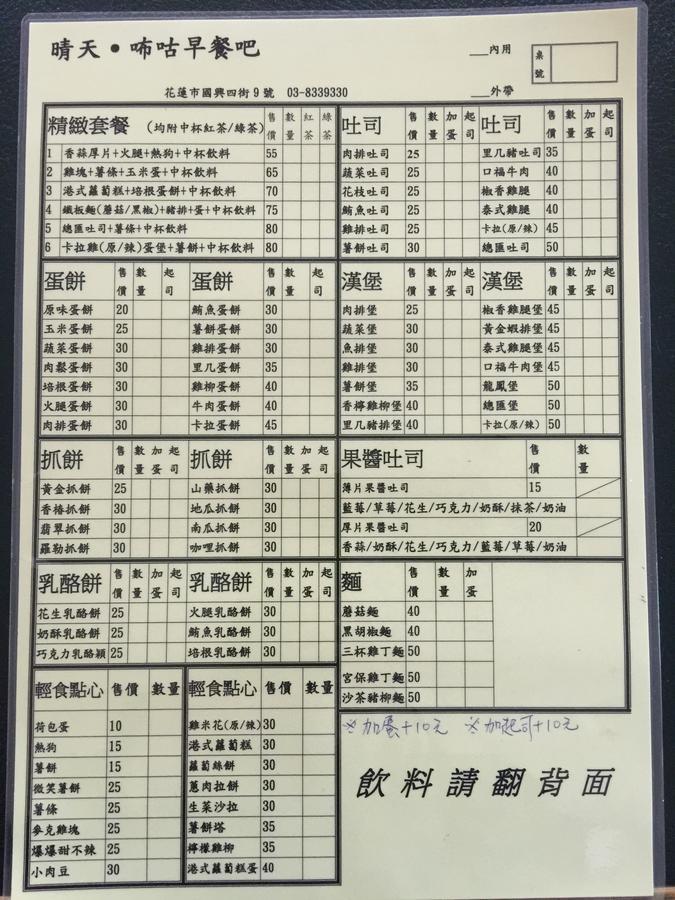 晴天•咘咕早餐吧
___內用
___外帶
桌號
花蓮市國興四街9號 03-8339330
精緻套餐 (均附中杯紅茶/綠茶) 售價 數量 紅茶 綠茶
1 香蒜厚片+火腿+熱狗+中杯飲料 55
2 雞塊+薯條+玉米蛋+中杯飲料 65
3 港式蘿蔔糕+培根蛋餅+中杯飲料 70
4 鐵板麵(蘑菇/黑椒)+豬排+蛋+中杯飲料 75
5 總匯吐司+薯條+中杯飲料 80
6 卡拉雞(原/辣)蛋堡+薯餅+中杯飲料 80
吐司 售價 數量 加蛋 起司 吐司 售價 數量 加蛋 起司
肉排吐司 25 里几豬吐司 35
蔬菜吐司 25 口福牛肉 40
花枝吐司 25 椒香雞腿 40
鮪魚吐司 25 泰式雞腿 40
雞排吐司 25 卡拉(原/辣) 45
薯餅吐司 30 總匯吐司 50
蛋餅 售價 數量 起司 蛋餅 售價 數量 起司
原味蛋餅 20 鮪魚蛋餅 30
玉米蛋餅 25 薯餅蛋餅 30
蔬菜蛋餅 30 雞排蛋餅 30
肉鬆蛋餅 30 里几蛋餅 35
培根蛋餅 30 雞柳蛋餅 40
火腿蛋餅 30 牛肉蛋餅 40
肉排蛋餅 30 卡拉蛋餅 45
漢堡 售價 數量 加蛋 起司 漢堡 售價 數量 加蛋 起司
肉排堡 25 椒香雞腿堡 45
蔬菜堡 30 黃金蝦排堡 45
魚排堡 30 泰式雞腿堡 45
雞排堡 30 口福牛肉堡 45
薯餅堡 35 龍鳳堡 50
香檸雞柳堡 40 總匯堡 50
里几豬排堡 40 卡拉(原/辣) 50
抓餅 售價 數量 加蛋 起司 抓餅 售價 數量 加蛋 起司
黃金抓餅 25 山藥抓餅 30
香椿抓餅 30 地瓜抓餅 30
翡翠抓餅 30 南瓜抓餅 30
羅勒抓餅 30 咖哩抓餅 30
果醬吐司 售價 數量
薄片果醬吐司 15
藍莓/草莓/花生/巧克力/奶酥/抹茶/奶油
厚片果醬吐司 20
香蒜/奶酥/花生/巧克力/藍莓/草莓/奶油
乳酪餅 售價 數量 加蛋 起司 乳酪餅 售價 數量 加蛋 起司
花生乳酪餅 25 火腿乳酪餅 30
奶酥乳酪餅 25 鮪魚乳酪餅 30
巧克力乳酪穎 25 培根乳酪餅 30
麵 售價 數量 加蛋
蘑菇麵 40
黑胡椒麵 40
三杯雞丁麵 50
宮保雞丁麵 50
沙茶豬柳麵 50
輕食點心 售價 數量 輕食點心 售價 數量
荷包蛋 10 雞米花(原/辣) 30
熱狗 15 港式蘿蔔糕 30
薯餅 15 蘿蔔絲餅 30
微笑薯餅 25 蔥肉拉餅 30
薯條 25 生菜沙拉 30
麥克雞塊 25 薯餅塔 35
爆爆甜不辣 25 檸檬雞柳 35
小肉豆 30 港式蘿蔔糕蛋 40
※加蛋+10元 ※加起司+10元
飲料請翻背面